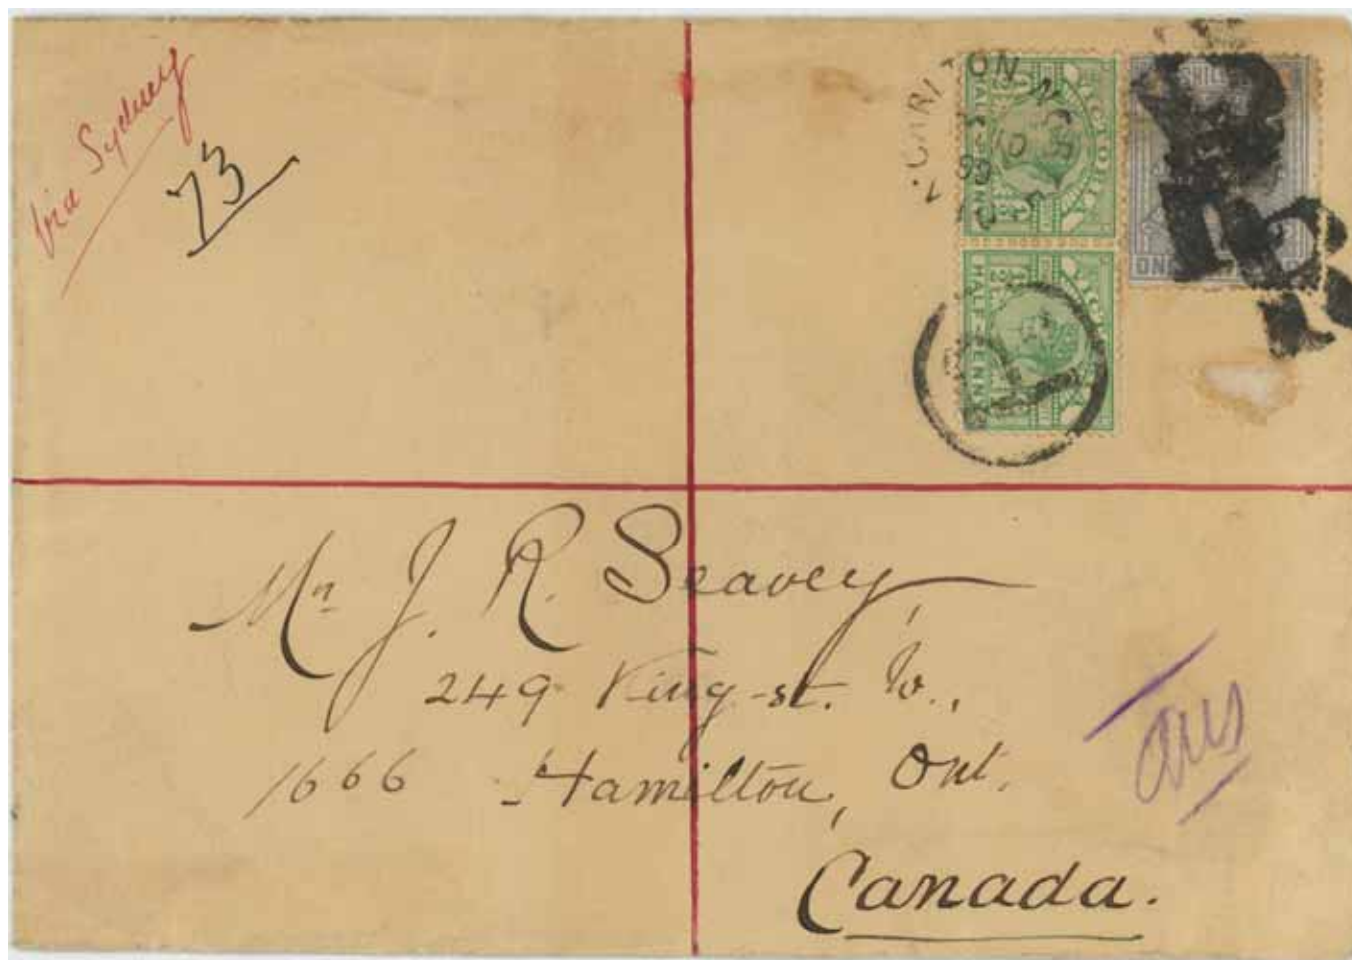 via Sydney
73
CARLTON
VICTORIA
HALF-PENNY
VICTORIA
HALF-PENNY
SHILLING
ONE
Mr J. R. Seavey,
249 King-st. W.,
1666 Hamilton, Ont.
Canada.